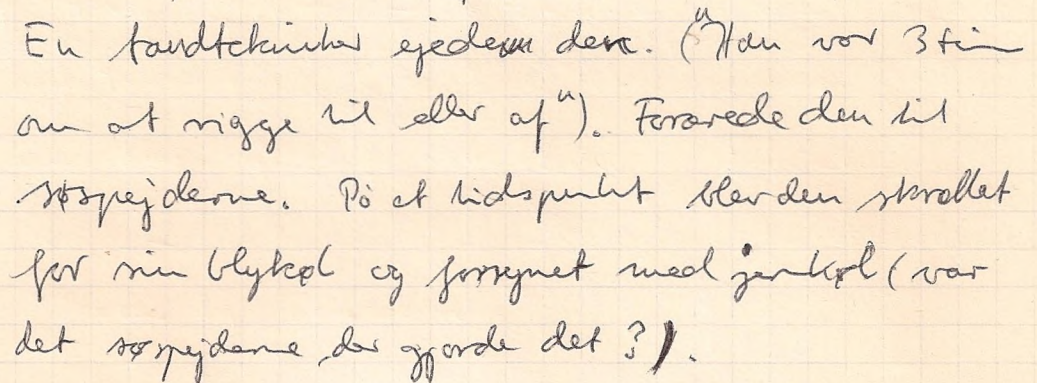 En tandtekniker ejede den. ("Han var 3 tim
om at rigge til eller af"). Forærede den til
søspejderne. På et tidspunkt blev den skrællet
for sin blykøl og forsynet med jernkøl (var
det søspejderne der gjorde det?).